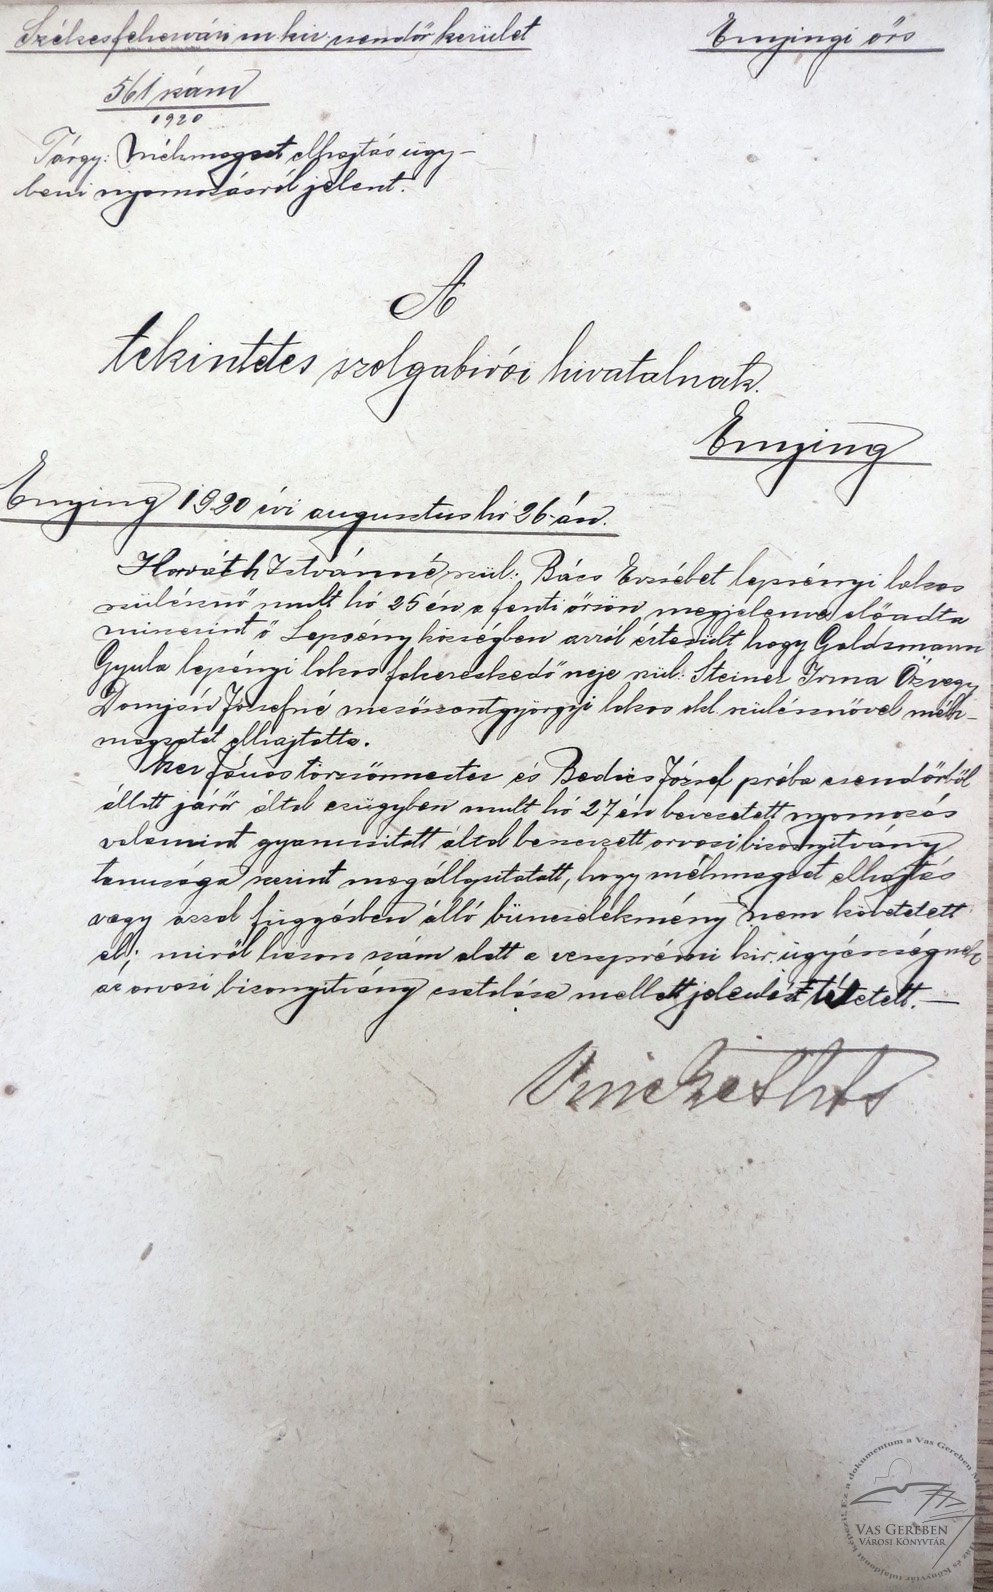 Székesfehérvári m kir csendőr kerület
Enyingi őrs
561 szám
1920
Tárgy: Méhmagzat elhajtás ügy-
beni nyomozásról jelent.
A
tekintetes szolgabirói hivatalnak.
Enying
Enying 1920 évi augusztus hó 26-án.
Horváth Istvánné szül: Bács Erzsébet lepsényi lakos
szülésznő mult hó 25 én a fenti őrsön megjelenve előadta
miszerint ő Lepsény községben arról értesült hogy Goldsmann
Gyula lepsényi lakos fakereskedő neje szül: Steiner Irma Özvegy
Domján Józsefné mezőszentgyörgyi lakos okl. szülésznővel méh-
magzatát elhajtotta.
János törzsőrmester és Bedics József próba csendőrből
állott járőr által ezügyben mult hó 27 én bevezetett nyomozás
valamint gyanusitott által beszerzett orvosi bizonyitvány
tanusága szerint megállapitatott, hogy méhmagzat elhajtás
vagy azzal függésben álló büncselekmény nem követetett
el; miről hason szám alatt a veszprémi kir. ügyészségnek
az orvosi bizonyitvány csatolása mellett jelentést tétetett. —
VAS GEREBEN
VÁROSI KÖNYVTÁR